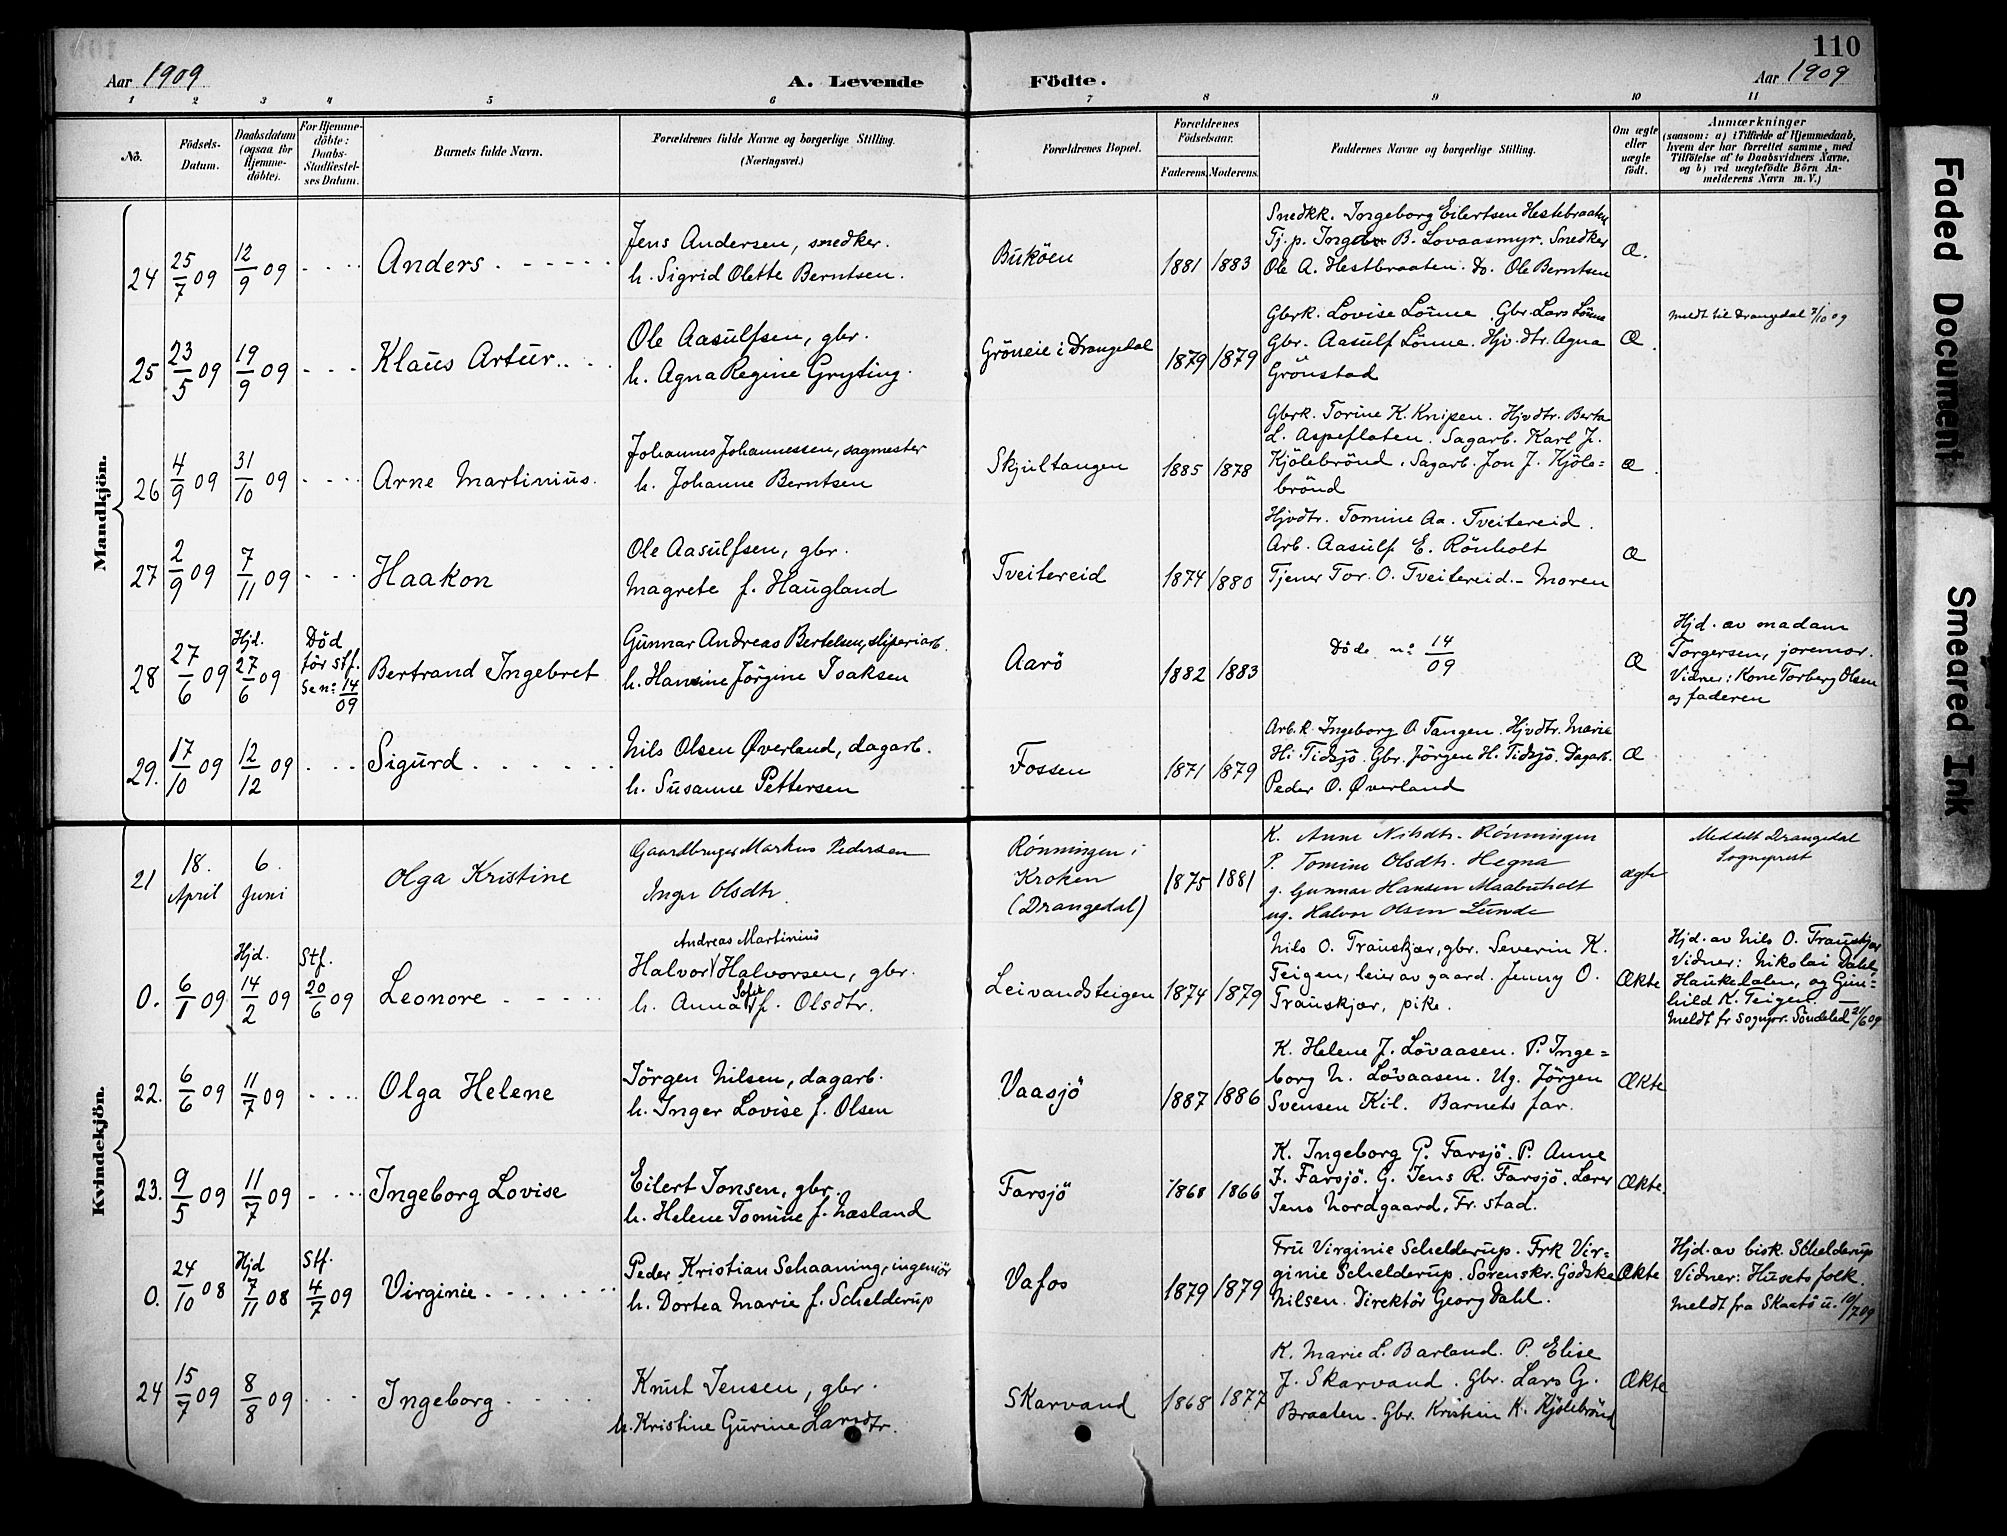 110
Aar 1909
A. Levende Födte.
Aar 1909
1 2 3 4 5 6 7 8 9 10 11
No.
Födsels-Datum.
Daabsdatum (ogsaa for Hjemme-döbte).
For Hjemme-döbte: Daabs-Stadfæstel-ses Datum.
Barnets fulde Navn.
Forældrenes fulde Navne og borgerlige Stilling. (Næringsvei.)
Forældrenes Bopæl.
Forældrenes Födselsaar.
Faderens. Moderens.
Faddernes Navne og borgerlige Stilling.
Om ægte eller uægte födt.
Anmærkninger
(saasom: a) i Tilfælde af Hjemmedaab,
hvem der har forrettet samme, med
Tilföielse af to Daabsvidners Navne,
og b) ved uægtefödte Börn An-
melderens Navn m. V.)
Mandkjön.
24 25/7 09 12/9 09 Anders
Jens Andersen, snedker.
h. Sigrid Olette Berntsen.
Buköen 1881 1883
Snedkk. Ingeborg Eilertsen Hestbraaten
Tj. p. Inger B. Lovaasmyr. Snedker
Ole A. Hestbraaten. Do. Ole Berntsen
Æ.
25 23/5 09 19/9 09 Klaus Artur
Ole Aasulfsen, gbr.
h. Agna Regine Gryting.
Gröneie i Drangedal 1879 1879
Gbrk. Lovise Lönne. Gbr. Lars Lönne
Gbr. Aasulf Lönne. Hjv. dtr. Agna
Grönstad
Æ.
Meldt til Drangedal 7/10 09
26 4/9 09 31/10 09 Arne Martinius.
Johannes Johannessen, sagmester
h. Johanne Berntsen
Skjultangen 1885 1878
Gbrk. Torine K. Knipen. Hjvdtr. Berta
L. Aspeflaten. Sagarb. Karl J.
Kjölebrönd. Sagarb. Jon J. Kjöle=
brönd
Æ.
27 2/9 09 7/11 09 Haakon
Ole Aasulfsen, gbr.
Magrete f. Haugland
Tveitereid 1874 1880
Hjvdtr. Tomine Aa. Tveitereid.
Arb. Aasulf E. Rönholt
Tjener Tor. O. Tveitereid. - Moren
Æ
28 27/6 09 Hjd. 27/6 09 Död för stf. Se n: 14/09 Bertrand Ingebret
Gunnar Andreas Bertelsen, sliperiarb.
h. Hansine Jörgine Isaksen
Aarö 1882 1883
Döde n: 14/09
Æ
Hjd. av madam
Torgersen, joremor.
Vidner: Kone Torberg Olsen
og faderen
29. 17/10 09 12/12 09 Sigurd
Nils Olsen Øverland, dagarb.
h. Susanne Pettersen
Fossen 1871 1879
Arb.k. Ingeborg O. Tangen. Hjvdtr. Marie
H. Tidsjö. Gbr. Jörgen H. Tidsjö. Dagarb.
Peder O. Øverland
Æ
Kvindekjön.
21 18. April 6. Juni Olga Kristine
Gaardbruger Markus Pedersen
Inger Olsdtr.
Rönningen i
Kroken
(Drangedal)
1875 1881
K. Anne Nilsdtr. Rönningen
P. Tomine Olsdtr. Hegna
g. Gunnar Hansen Maabuholt
ug. Halvor Olsen Lunde
ægte
Meddelt Drangedal
Sogneprest
0. 6/1 09 Hjd. 14/2 09 Stf. 20/6 09 Leonore
Andreas Martinius
Halvor Halvorsen, gbr.
h. Anna Sofie f. Olsdtr.
Leivandsteigen 1874 1879
Nils O. Trauskjær, gbr. Severin K.
Teigen, leier av gaard. Jenny O.
Trauskjær, pike.
Ækte
Hjd. av Nils O. Trauskjær
Vidner: Nikolai Dahl,
Haukedalen, og Gun=
hild K. Teigen. —
Meldt fr sognpr. Söndeled 21/6 09
22. 6/6 09 11/7 09 Olga Helene
Jörgen Nilsen, dagarb.
h. Inger Lovise f. Olsen
Vaasjö 1887 1886
K. Helene J. Lövaasen. P. Inge=
borg N. Lövaasen. Ug. Jörgen
Svensen Kil. Barnets far.
Ækte
23. 9/5 09 11/7 09 Ingeborg Lovise
Eilert Jonsen, gbr.
h. Helene Tomine f. Næsland
Farsjö 1868 1866
K. Ingeborg P. Farsjö. P. Anne
J. Farsjö. G. Jens R. Farsjö. Lærer
Jens Nordgaard, Fr. stad.
Ækte.
0. 24/10 08 Hjd 7/11 08 Stf. 4/7 09 Virginie
Peder Kristian Schaaning, ingeniör
h. Dortea Marie f. Schelderup
Vafos 1879 1879
Fru Virginie Schelderup. Frk Vir=
ginie Schelderup. Sorenskr. Godske
Nilsen. Direktör Georg Dahl.
Ækte
Hjd. av bisk. Schelderup
Vidner: Husets folk.
Meldt fra Skaatö u. 10/7 09
24 15/7 09 8/8 09 Ingeborg
Knut Jensen, gbr.
h. Kristine Gurine Larsdtr.
Skarvand 1868 1877
K. Marie L. Barland. P. Elise
J. Skarvand. Gbr. Lars G.
Braaten. Gbr. Kristen K. Kjölebrönd
Ækte
Faded Document
Smeared Ink